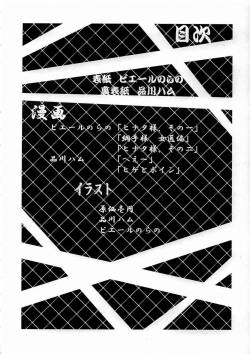 目次
表紙 ピエールのらの
裏表紙 品川ハム
漫画
ピエールのらの「ヒナタ様、その一」
「綱手様、女医編」
「ヒナタ様、その二」
品川ハム「へえー」
「ヒゲとボイン」
イラスト
原価壱円
品川ハム
ピエールのらの